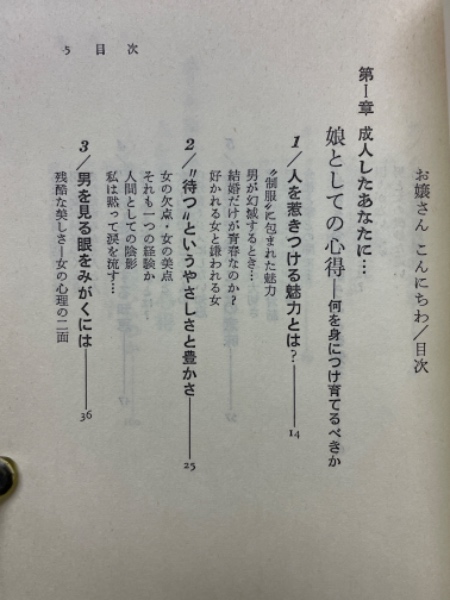 お嬢さん こんにちわ/目次
第Ⅰ章 成人したあなたに…
娘としての心得―何を身につけ育てるべきか
1/人を惹きつける魅力とは?――14
〝制服〟に包まれた魅力
男が幻滅するとき…
結婚だけが青春なのか?
好かれる女と嫌われる女
2/〝待つ〟というやさしさと豊かさ――25
女の欠点・女の美点
それも一つの経験か
人間としての陰影
私は黙って涙を流す…
3/男を見る眼をみがくには――36
残酷な美しさ―女の心理の二面
5 目次